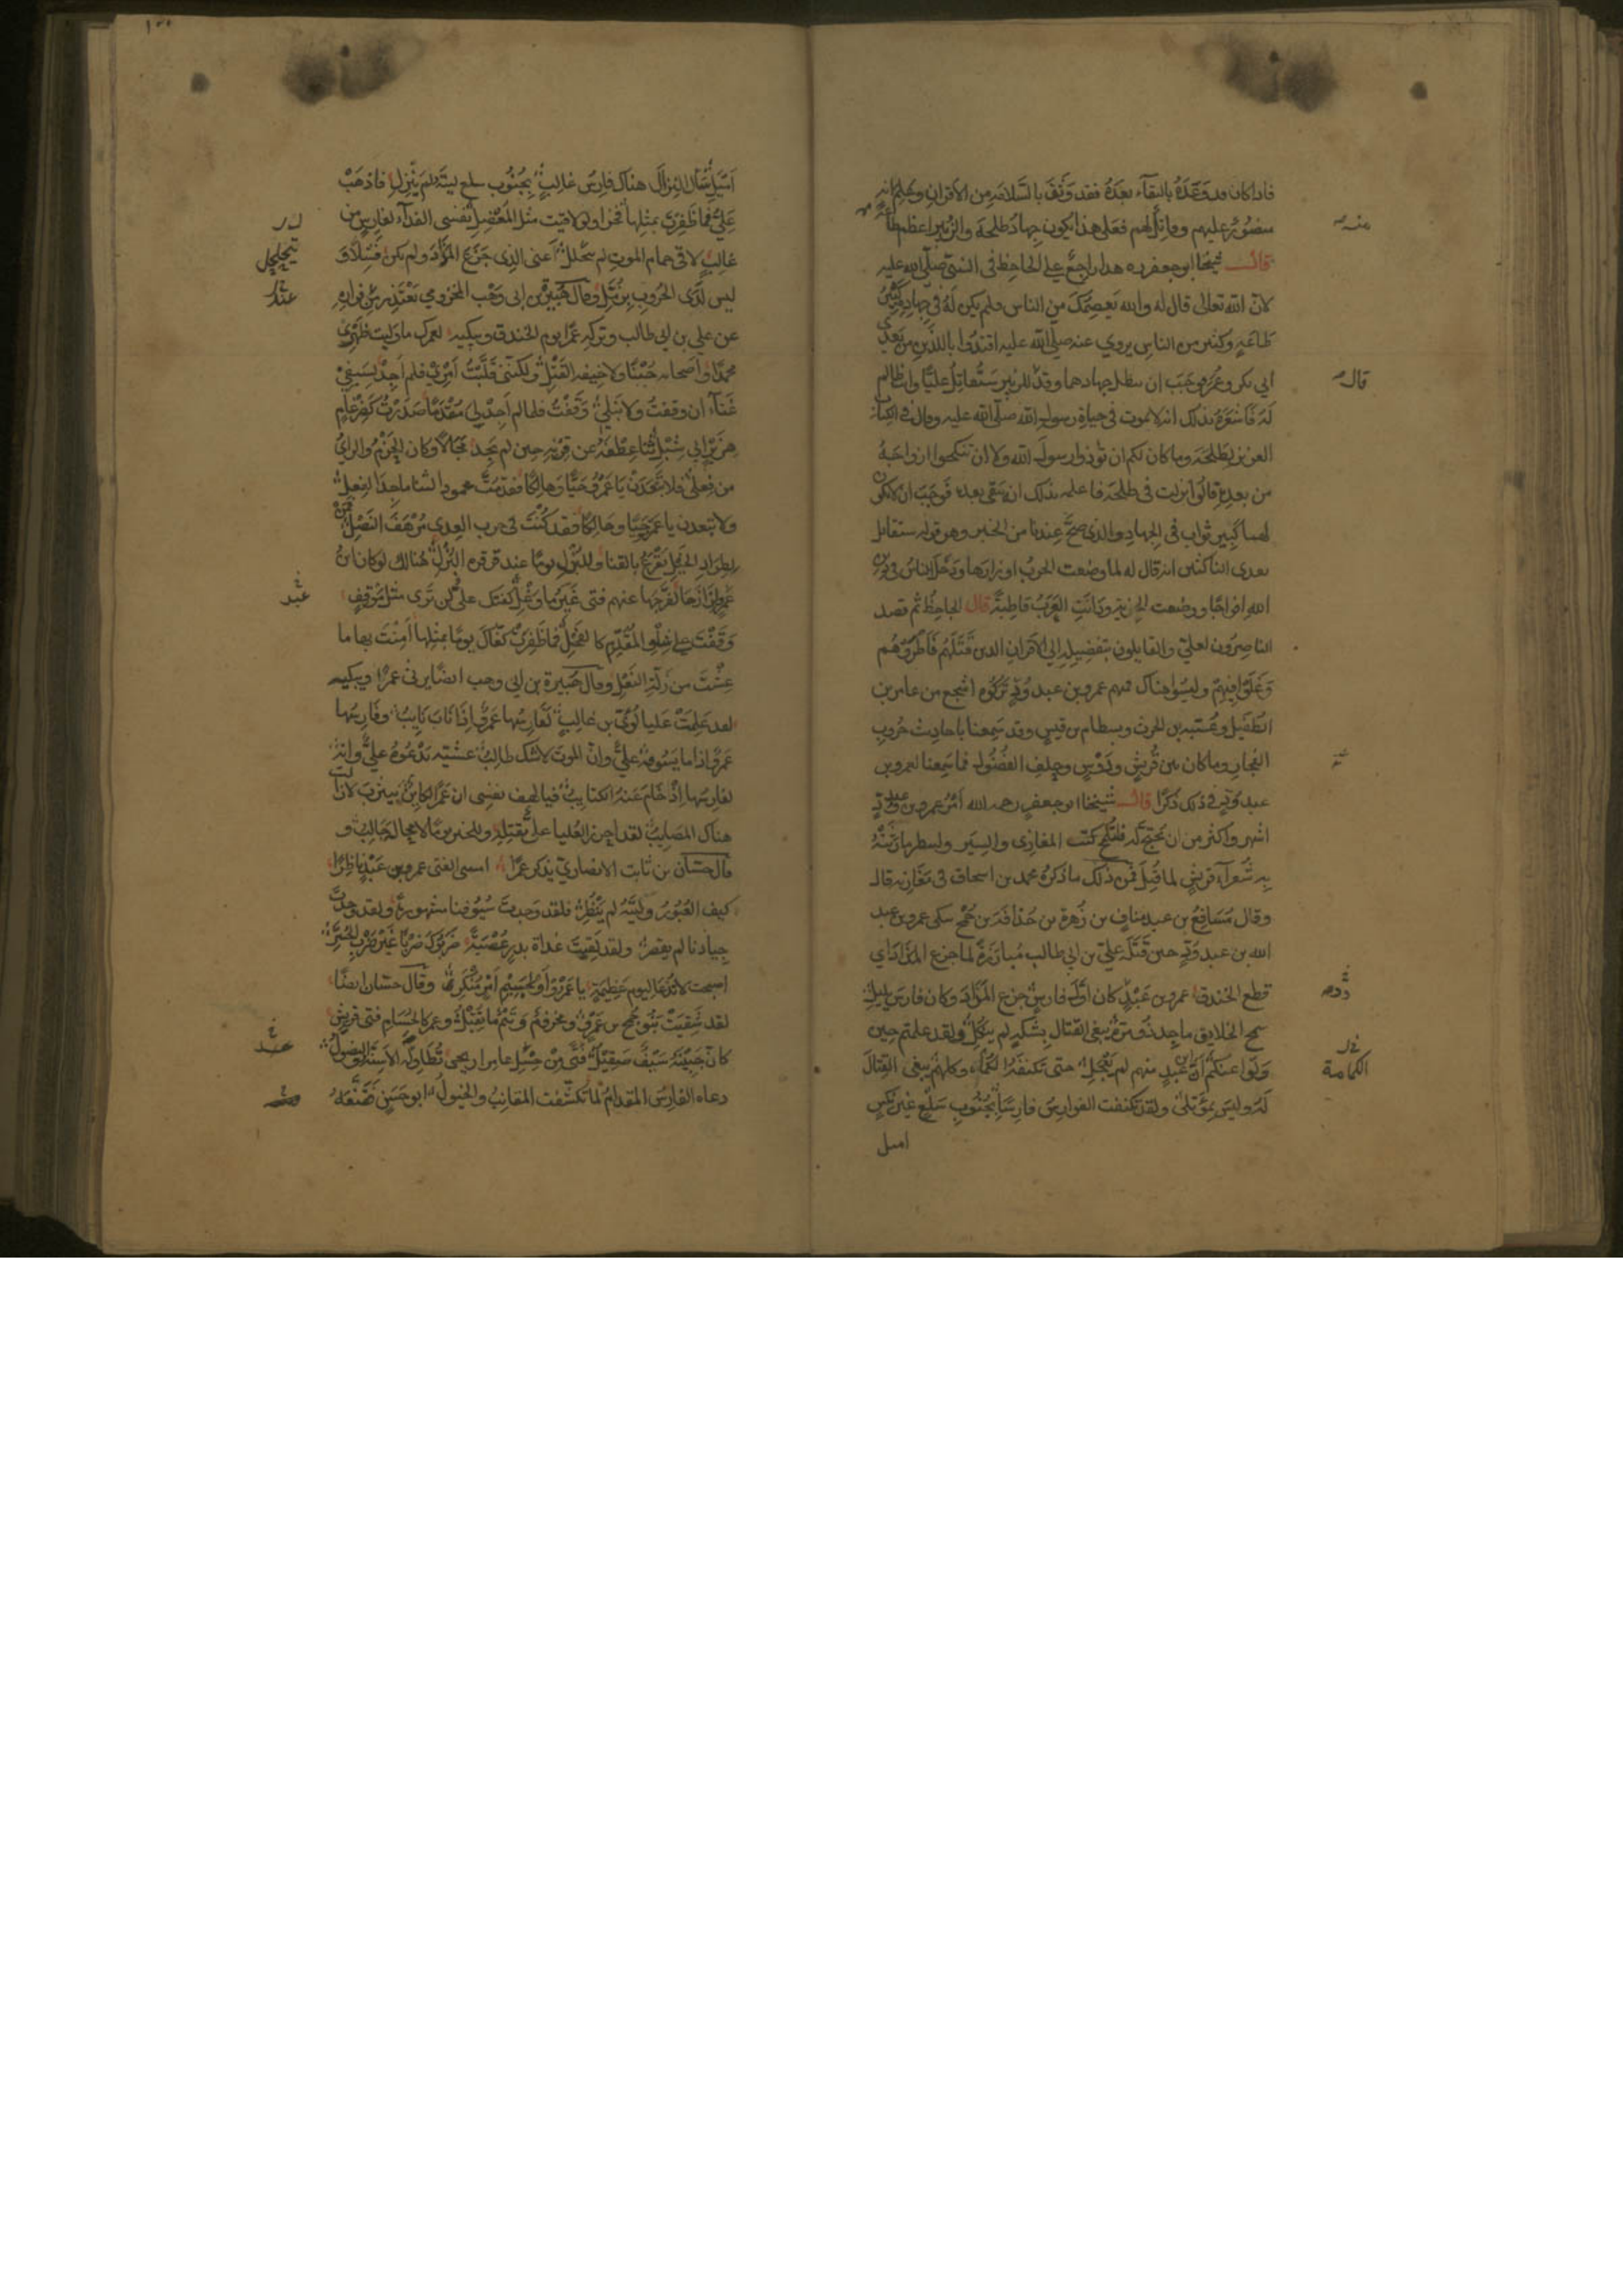 فاذا كان قد وَعَدَهُ بالبقآء بعدَهُ فقد وَثِقَ بالسَّلامَةِ من الاقرانِ وعلم انه
منصُورٌ عليهم وقاتِلٌ لهم فعَلى هذا يكون جِهادُ طلحةَ والزُبَير اعظم طاعَةٍ
قالــ شيخنا ابو جعفر ره هذا راجعٌ على الجاحِظ فى النبىّ صلّى الله عليه
لانّ الله تعالى قال له والله يَعصِمُكَ من الناس فلم يكن لَهُ فى جِهادِه كَبيرُ
طاعَةٍ وكثير من الناسِ يروي عنه صلّى الله عليه اقتدُوا باللذَينِ من بَعدِى
ابي بكر وعُمَرَ فوجَبَ ان يبطل جِهادهما وقد قال للزبير سَتُقاتِلُ عليًّا وانت ظالِم
لَهُ فَاشعَرَهُ بذلك انه لا يموت فى حياةِ رسول الله صلّى الله عليه وقال فى الكتاب
العزيز لطلحةَ وما كان لكم ان تُوذوا رسولَ الله ولا ان تنكحوا ازواجَهُ
من بعدِهِ قالُوا نزلت فى طلحة فاعلمه بذلك انه يبقى بعده فوَجَبَ ان لا يكون
لهما كبير ثواب فى الجِهادِ والذى صَحَّ عندنا من الخبر وهو قوله ستقاتل
بعدى الناكثين انه قال له لما وضعت الحربُ اوزارها ودَخل الناسُ فى دين
الله افواجًا ووضعت الجزية ودَانَتِ العَرَبُ قاطِبةً قال الجاحِظُ ثم قصد
الناصِرُون لعليّ والقايلون بتفضِيلِه الي الاقرانِ الذين قَتَلَهُم فَأَطرَوهُم
وَغَلَوا فِيهِم وليسُوا هناك فمنهم عمرو بن عبد وُدٍّ تَرَكُوه اشجع من عامر بن
الطُفَيلِ وعُتَيبه بن الحرث وبسطام بن قيسٍ وقد سَمِعنا باحاديث حُروبِ
الفِجارِ وما كان بين قُرَيشٍ ودَوْسٍ وحِلفِ الفُضُولِ فما سَمِعنا لعمرو بن
عبد وُدٍّ فى ذلك ذكرًا قالــ شيخنا ابو جعفر رحمه الله اَمْرُ عمرو بن عبد وُدٍّ
اشهر واكثر من ان يحتج له فلتُلمَح كتب المغازى والسِيَر ولينظر ما رَثَتهُ
بِه شُعَرآءُ قريشٍ لما قُتِلَ فمِن ذلك ما ذكرهُ محمد بن اسحاق فى مَغازِيه قال
وقال مُسَافِعُ بن عبد مناف بن زُهرة بن حُذافَه بن جُمَح يبكى عمرو بن عبد
الله بن عبد وَدٍّ حين قَتَلَهُ عليّ بن ابي طالب مُبارَزَةً لما جزع المَذادَ اي
قطع الخندق عمرو بن عَبْدٍ كان اوَّلَ فارِسٍ جزع المَذادَ وكان فارسَ يَليَلِ
سمح الخلايق ماجِد ذُو مِرّةٍ يبغى القتال بِشكّةٍ لم يَنكُلِ ولقد علمتم حين
وَلّوا عنكُم اَنّ ابن عَبدٍ منهم لم يَعْجَلِ حتى تكنفَهُ الكُماةُ وكلهم يبغى القِتالَ
لَهُ وليس بمُؤتلى ولقد تكنفت الفوارِسُ فارِسًا بِجُنُوبِ سَلْعٍ غيرَ نِكسٍ
اميل
منه
قال
الكماة
اَميَل سَأَل النِزالَ هناك فارِسُ غالِبٍ بِجُنُوبِ سلع ليتَهُ لم يَنْزِلِ فاذهَبْ
عَلِيُّ فما ظَفِرتَ بمثلِها فخرا ولو لاقيت مثل المُعْضِلِ نفسي الفداء لفارِسٍ من
غالِبٍ لاقى حِمام الموتِ لم يتحلل اَعنى الذى جَزَعَ المَذادَ ولم يكن فَشِلًا وَ
ليس لَدَى الحُروبِ بِزُمَّلِ وقال هُبَيرَة بن ابى وَهْب المخزومي يَعْتَذِر من فِراره
عن علي بن ابي طالب وتركه عمرًا يوم الخندق ويبكيه لعمرك ما وليت ظهرى
محمدًا واصحابه جُبْنًا ولا خيفه القَتْلِ ولكنّنى قَلَّبْتُ اَمْرى فلم اَجِدْ لِسَيفىْ
غَنآءً ان وقفتُ ولا نَبلي وقَفْتُ فلما لم اَجِدْ لى مَقْدَمًا صَدَرْتُ كضِرغامٍ
هِزَبْرٍ ابي شِبْلِ ثَنا عِطْفَهُ عن قِرْنِه حين لم يَجِد مَجَالًا وكان الحَزْمُ والراىُ
من فِعلى فلا تَبْعَدَنْ يَا عَمْرُو حَيًّا وهالِكًا فقد مُتَّ محمود الثنا ماجِدَ الفِعلِ
ولا تبعدن يا عَمرُو حَيًّا وهَالِكًا فقد كُنْتَ فى حرب العِدى مُرْهَفَ النَصْلِ فمَن
لِطِرادِ الخَيْلِ تُقْرَعُ بالقنا وللبُزْلِ يومًا عند قرقرة البُزْلِ هُنالِك لو كان ابنُ
عَمْرٍو لزارَها لَفَرَّجَها عنهم فتى غيرُ ما وَغْلِ كفتك عليُّ لن تَرَى مثل مَوقِفٍ
وَقَفْتَ على شِلْوِ المُقَدَّمِ كالفَحْلِ فما ظَفِرَتْ كَفّاكَ يومًا بمثلِها اَمِنْتَ بها ما
عِشْتَ من زَلّةِ النَعْلِ وقال هُبَيرة بن ابي وهب ايضًا يرثى عمرًا ويبكيه
لقد عَلِمَتْ عليا لُؤَىِّ بن غالِبٍ لَفارِسُها عَمرٌو اِذَا نَابَ نَايِبُ وفَارِسُها
عَمرٌو اذا ما يَسُوقهُ عليٌّ وانّ الموتَ لا شك طالِبُ عشيّه يَدْعُوهُ عليٌّ وانه
لفارِسُها اِذْ خَامَ عَنهُ الكتايِبُ فيا لهف نفسى ان عَمْرًا لكايِنٌ بيثرِبَ لا زالت
هناك المصايِبُ لقد احرز العُليا عليٌّ بقتلِهِ وللخير يومًا لا مجالَة جَالِبُ و
قال حسّان بن ثابت الانصاريّ يذكر عمرًا امسى الفتى عمرو بن عَبْدٍ ناظِرًا
كيف العُبُورُ ولَيْتَهُ لم يَنْظُرِ فلقد وَجدتَ سُيُوفنا مشهورةً ولقد وجدتَ
جِيادَنا لم يقصر ولقد لَقِيتَ غداة بدرٍ عُصْبَةً ضرَبُوكَ ضربًا غَيرَ ضَرْبِ الحُسَّرِ
اصبحت لا تُدْعَا ليومِ عَظِيمَةٍ يا عَمْرُو اَو لجَسِيْمِ اَمْرٍ مُنكَرِ وقال حسّان ايضًا
لقد شَقِيَتْ بَنُو جُمَح بن عَمْرٍو ومخزومٌ وتَيْمٌ ما نُقِيْلُ وعمرو كالحُسَامِ فتى قريشٍ
كانَّ جَبِيْنَهُ سَيْفٌ صَقِيْلُ فَتًى مِنْ حِسْلِ عامِر اريحى تُطَاوِلُه الاَسِنّةُ والنصولُ
دعاه الفارِسُ المِقدامُ لَمَّا تكشَّفت المَقانِبُ والخيولُ ابو حَسَنٍ فَقَنَّعَهُ
عبد